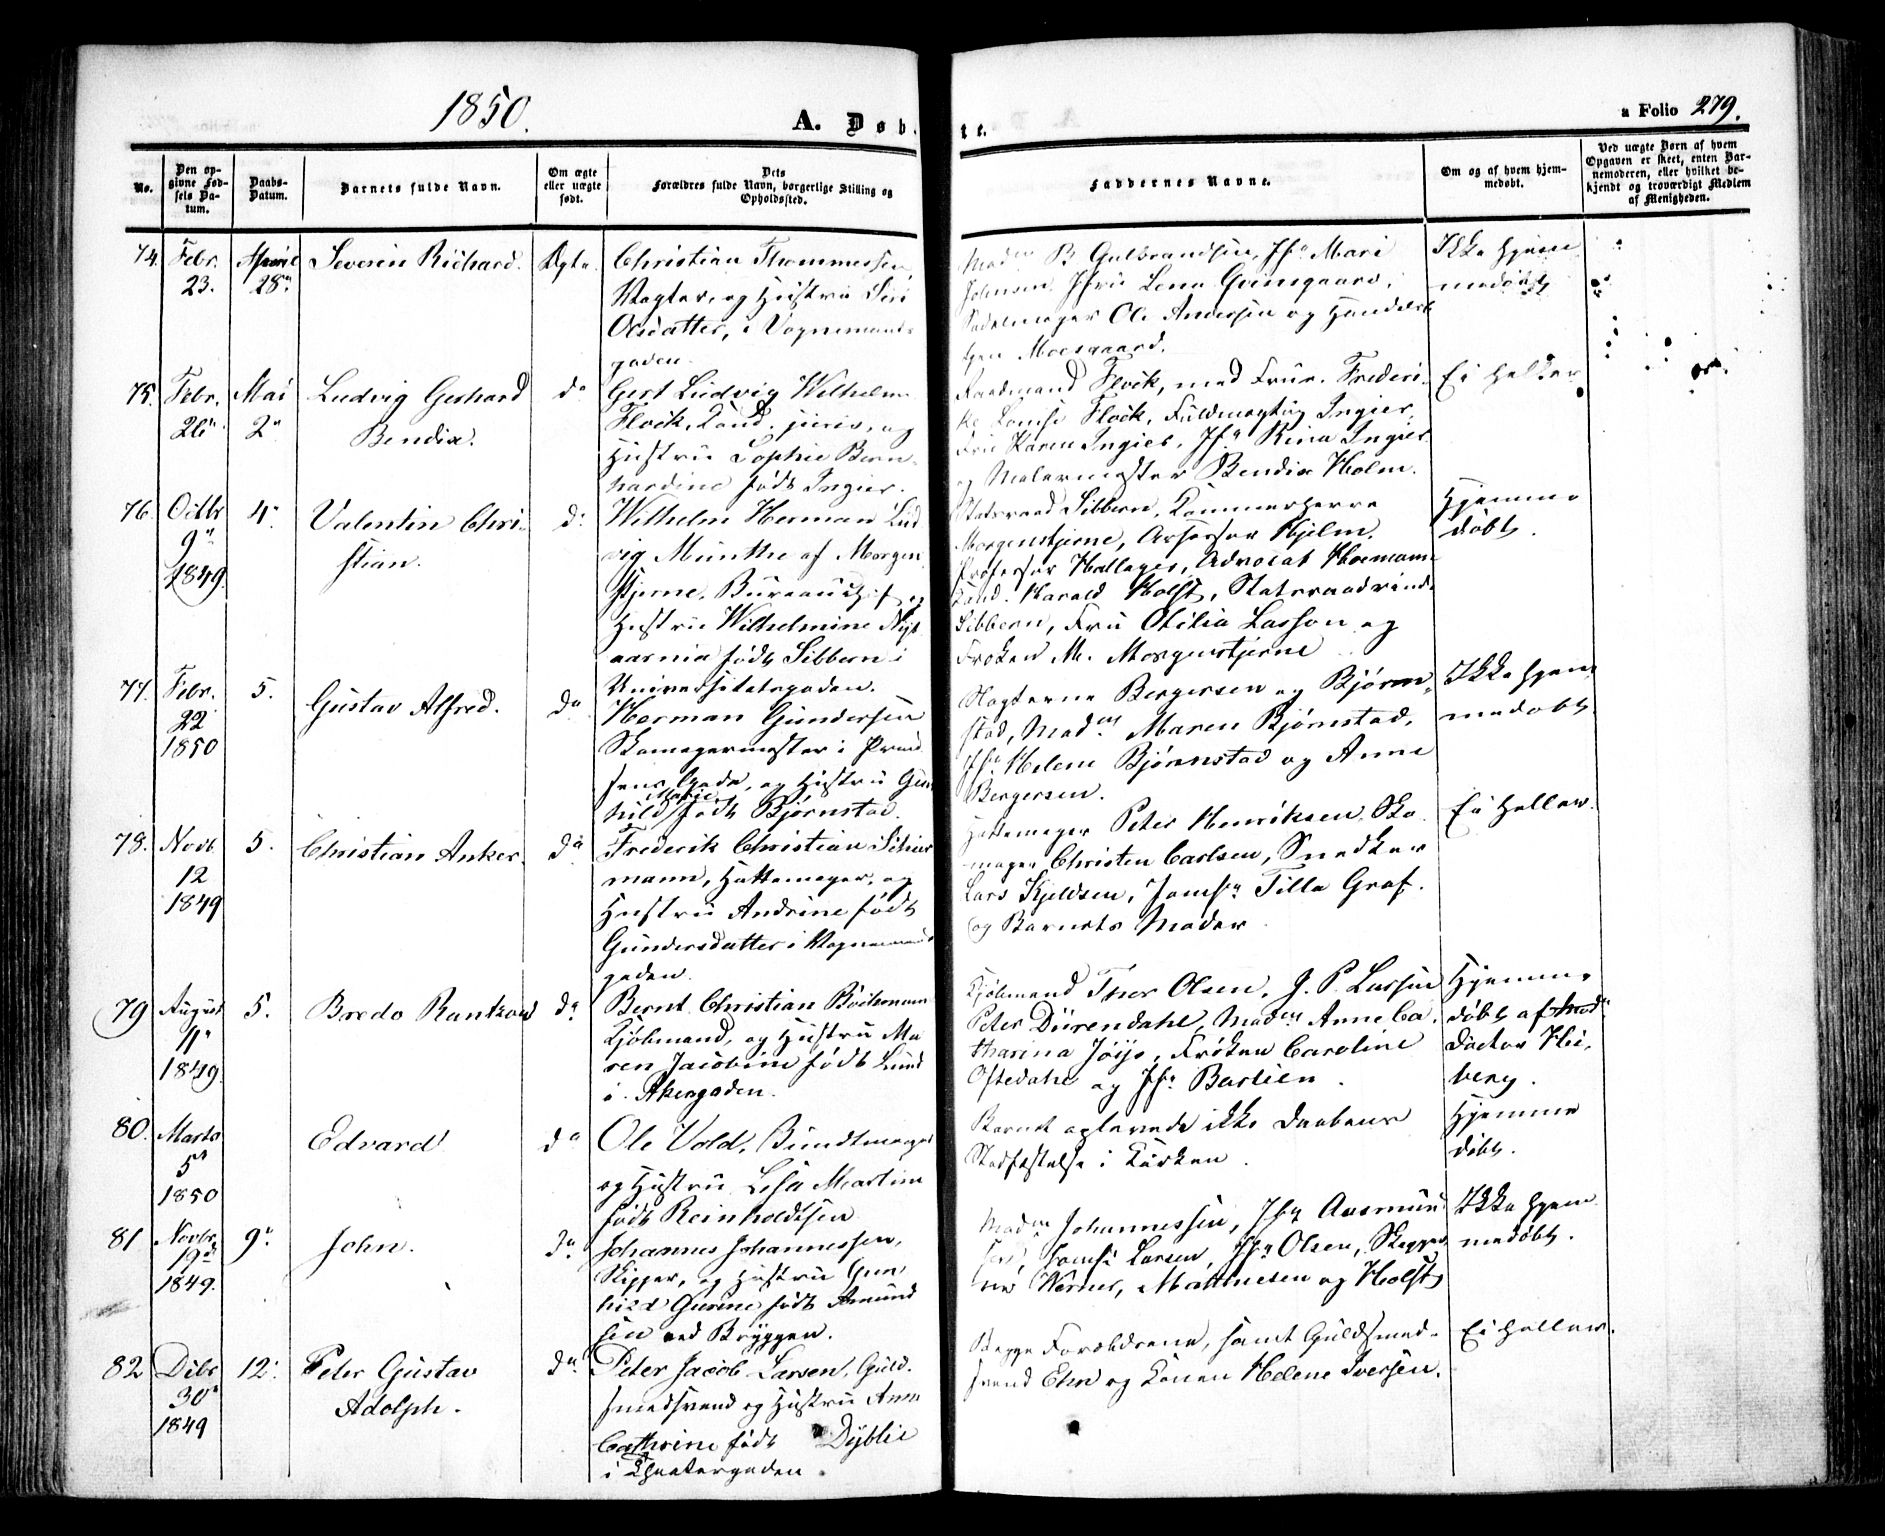 1850.
A. Døb-
te.
a Folio 279.
No.
Den op-
givne Fød-
sels Da-
tum.
Daabs-
Datum.
Barnets fulde Navn.
Om ægte
eller uægte
født.
Dets
Forældres fulde Navn, borgerlige Stilling og
Opholdssted.
Faddernes Navne.
Om og af hvem hjem-
medøbt.
Ved uægte Børn af hvem
Opgaven er skeet, enten Bar-
nemoderen, eller hvilket be-
kjendt og troværdigt Medlem
af Menigheden.
74. Febr. 23. April 28. Severin Richard. Ægte.
Christian Thommessen,
Vægter, og Hustru Siri
Olsdatter, i Vognmands-
gaden.
Mad. B Gulbrandsen, Jfr Mari
Johnsen, Jfru Lena Grimsgaard,
Sadelmager Ole Andersen og Handels
Moesgaard.
Ikke hjem-
medøbt
75. Febr. 26 Mai 2 Ludvig Gerhard
Bendix.
do
Gert Ludvig Wilhelm
Flock, Cand. juris, og
Hustru Sophie Bern-
hardine født Ingier.
Raadmand Flock, med Frue. Frederi-
ke Flock, Fuldmægtig Ingier,
Fru Karen Ingier, Jfr Rina Ingier
og Malermester Bendix Holm.
Ei heller
76. Octbr 9 1849. 4 Valentin Chri-
stian.
do
Wilhelm Herman Lud
vig Munthe af Morgen
stjerne, Bureauchef og
Hustru Wilhelmine
født Sibbern i
Universitetsgaden.
Statsraad Sibbern, Kammerherre
Morgenstjerne, Assessor Hjelm,
Professor Hallager, Advocat
Cand. Harald Holst, Statsraadinde
Sibbern, Fru Otilia Lasson og
Frøken M. Morgenstjerne
Hjemme
døbt.
77. Febr. 22 1850 5. Gustav Alfred. do
Herman Gundersen
Skomagermester i Prind
sens Gade, og Hustru Gun
hild Marie født Bjørnstad.
Slagterne Bergersen og Bjørn-
stad, Mad. Maren Bjørnstad,
Jfr Helene Bjørnstad og Anne
Bergersen.
Ikke hjem-
medøbt.
78. Novb. 12 1849 5. Christian Anker. do
Frederik Christian
mann, Hattemager, og
Hustru Andrine født
Gundersdatter i Vognmands
gaden.
Hattemager Peter Henriksen, Sko-
mager Christen Carlsen, Snedker
Lars Kjeldsen, Jomfr Tilla Graf.
og Barnets Moder
Ei heller.
79 August 11 1849. 5. Bredo Rantzou do
Bernt Christian Böckmann
Kjøbmand, og Hustru Ma
ren Jacobine født Lund
i Akersgaden.
Kjøbmand Thor Olsen, J. P. Larsen
Peter Dürendahl, Mad. Anne Ca-
tharina, Frøken Caroline
Oftedahl og Jfr Bastien.
Hjemme
døbt af
Doctor Hei-
berg.
80. Marts 5 1850 Edvard do
Ole Vold, Bundtmager
og Hustru Lisa Martine
født Reinholdtsen
Barnet oplevede ikke Daabens
Stadfæstelse i Kirken.
Hjemme
døbt.
81 Novbr. 19 1849. 9 John. do
Johannes Johannessen,
Skipper, og Hustru Gun
hild Gurine født Amund
sen ved Bryggen.
Mad. Johannessen, Jfr Aasmund
sen, Jomfr Larsen, Jfr Olsen, Skippe
rne Werner, Matthiesen og Holst
Ikke hjem
medøbt.
82 Decbr 30 1849 12. Peter Gustav
Adolph.
do
Peter Jacob Larsen, Guld-
smedsvend og Hustru Anne
Cathrine født Dyblie
i Theatergaden.
Begge Forældrene, samt Guldsmed-
svend Ehn og Konen Helene Iversen.
Ei heller.